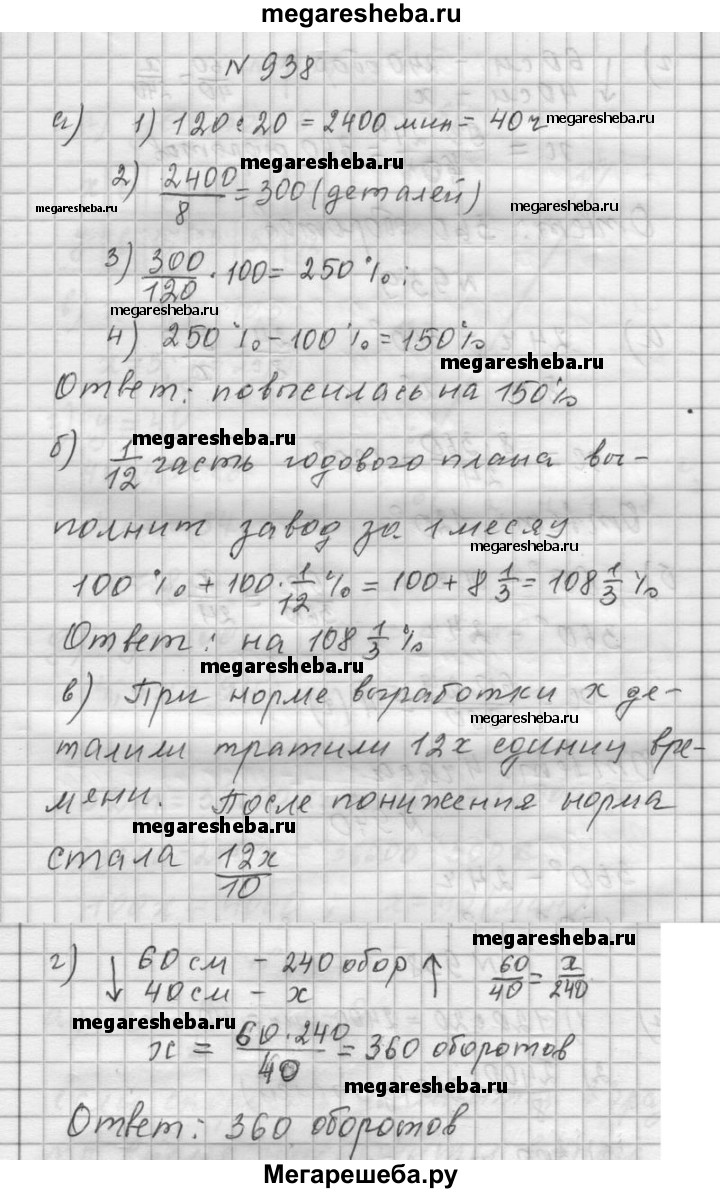 megaresheba.ru
N 938
а) 1) 120 · 20 = 2400 мин = 40 ч
megaresheba.ru
megaresheba.ru
2) 2400/8 = 300 (деталей)
megaresheba.ru
megaresheba.ru
3) 300/120 · 100 = 250 %;
megaresheba.ru
4) 250 % - 100 % = 150 %
megaresheba.ru
Ответ: повысилась на 150 %
megaresheba.ru
б) 1/12 часть годового плана вы-
полнит завод за 1 месяц
megaresheba.ru
100 % + 100 · 1/12 % = 100 + 8 1/3 = 108 1/3 %
Ответ: на 108 1/3 %
megaresheba.ru
в) При норме выработки x де-
megaresheba.ru
талили тратили 12x единиц вре-
мени. После понижения норма
megaresheba.ru
стала 12x/10
megaresheba.ru
г) ↓ 60 см - 240 обор ↑ 60/40 = x/240
40 см - x
megaresheba.ru
x = 60·240/40 = 360 оборотов
megaresheba.ru
Ответ: 360 оборотов
Мегарешеба.ру